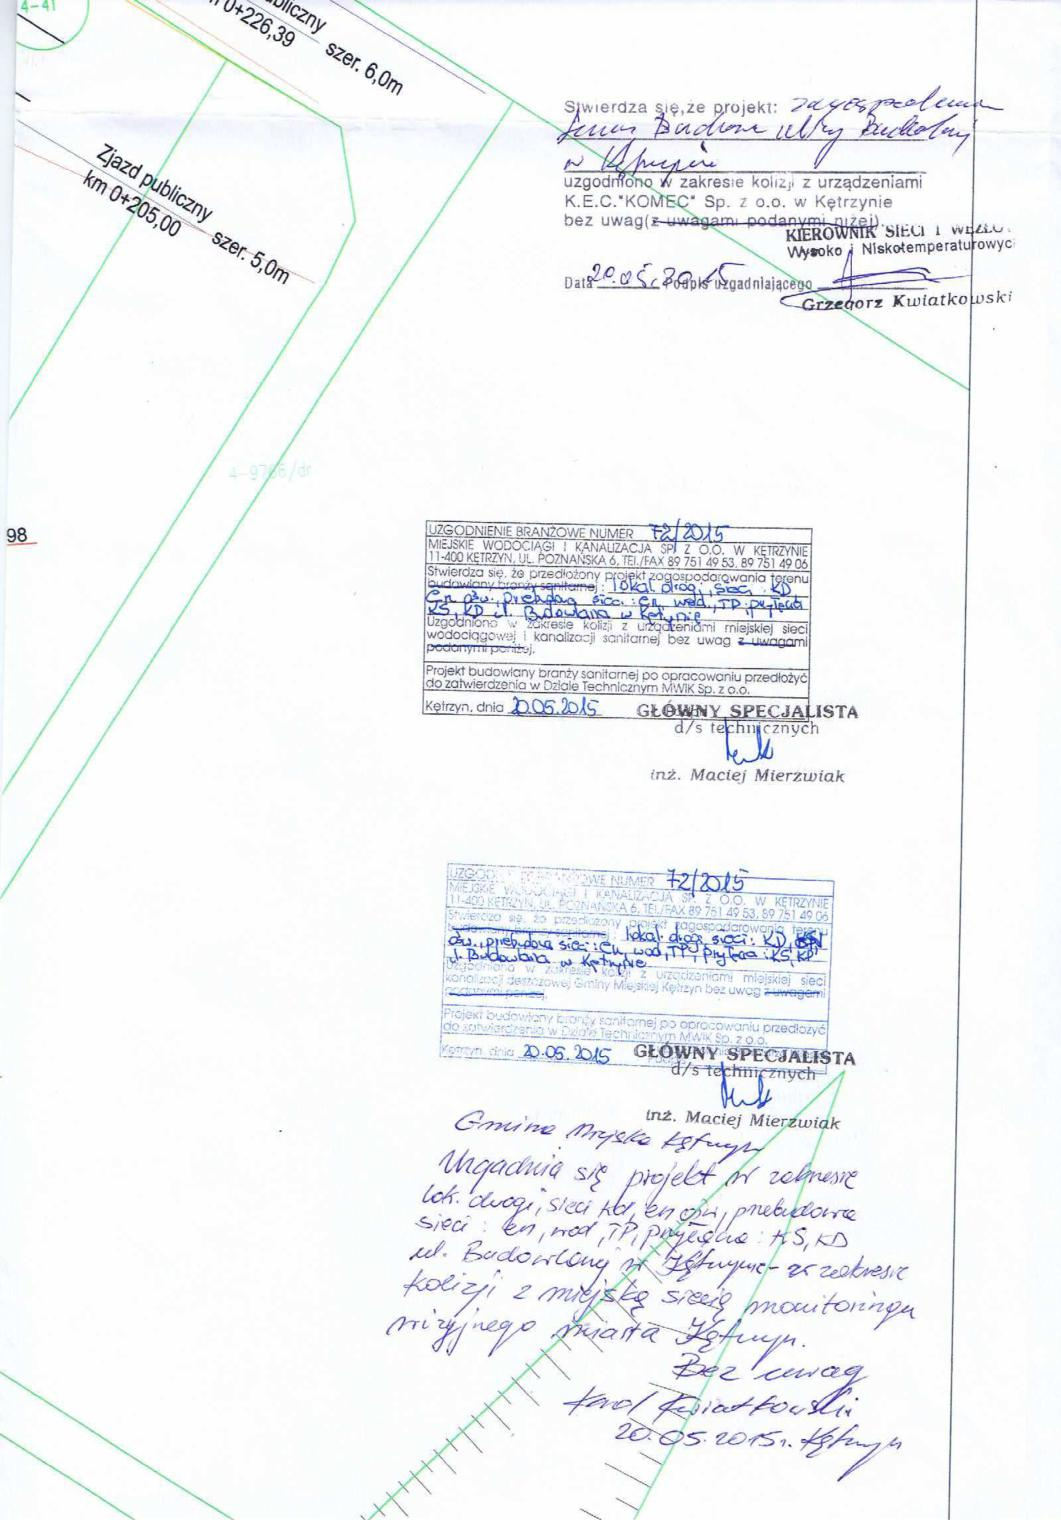 4-41
publiczny
0+226,39
szer. 6,0m
Zjazd publiczny
km 0+205,00
szer. 5,0m
98
4-9766/dr
Stwierdza się,że projekt: zagospodarowania
terenu Budowa ulicy Budowlanej
w Kętrzynie
uzgodniono w zakresie kolizji z urządzeniami
K.E.C."KOMEC" Sp. z o.o. w Kętrzynie
bez uwag(z uwagami podanymi niżej)
KIEROWNIK SIECI I WĘZŁÓ
Wysoko i Niskotemperaturowyc
Data 20.05.2015 Podpis uzgadniającego
Grzegorz Kwiatkowski
UZGODNIENIE BRANŻOWE NUMER 72/2015
MIEJSKIE WODOCIĄGI I KANALIZACJA SP. Z O.O. W KĘTRZYNIE
11-400 KĘTRZYN, UL. POZNAŃSKA 6, TEL/FAX 89 751 49 53, 89 751 49 06
Stwierdza się, że przedłożony projekt zagospodarowania terenu
budowlany branży sanitarnej: lokal. drogi, sieci: KD
en. ośw., przebudowa sieci: en, wod., TP, przyłącza
KS, KD ul. Budowlana w Kętrzynie
Uzgodniono w zakresie kolizji z urządzeniami miejskiej sieci
wodociągowej i kanalizacji sanitarnej bez uwag z uwagami
podanymi poniżej.
Projekt budowlany branży sanitarnej po opracowaniu przedłożyć
do zatwierdzenia w Dziale Technicznym MWiK Sp. z o.o.
Kętrzyn, dnia 20.05.2015
GŁÓWNY SPECJALISTA
d/s technicznych
inż. Maciej Mierzwiak
UZGOD BRANŻOWE NUMER 72/2015
MIEJSKIE WODOCIĄGI I KANALIZACJA SP. Z O.O. W KĘTRZYNIE
11-400 KĘTRZYN, UL. POZNAŃSKA 6, TEL/FAX 89 751 49 53, 89 751 49 06
Stwierdza się, że przedłożony projekt zagospodarowania terenu
budowlany branży sanitarnej: lokal. drogi, sieci: KD, en
ośw., przebudowa sieci: en, wod, TP, przyłącza: KS, KD
ul. Budowlana w Kętrzynie
Uzgodniono w zakresie kolizji z urządzeniami miejskiej sieci
kanalizacji deszczowej Gminy Miejskiej Kętrzyn bez uwag z uwagami
podanymi poniżej.
Projekt budowlany branży sanitarnej po opracowaniu przedłożyć
do zatwierdzenia w Dziale Technicznym MWiK Sp. z o.o.
Kętrzyn, dnia 20.05.2015
GŁÓWNY SPECJALISTA
d/s technicznych
inż. Maciej Mierzwiak
Gmina Miejska Kętrzyn
Uzgadnia się projekt w zakresie
lok. drogi, sieci kd, en ośw, przebudowa
sieci: en, wod, TP, przyłącza: KS, KD
ul. Budowlanej w Kętrzynie - w zakresie
kolizji z miejską siecią monitoringu
wizyjnego miasta Kętrzyn.
Bez uwag
Karol Kwiatkowski
20.05.2015r. Kętrzyn